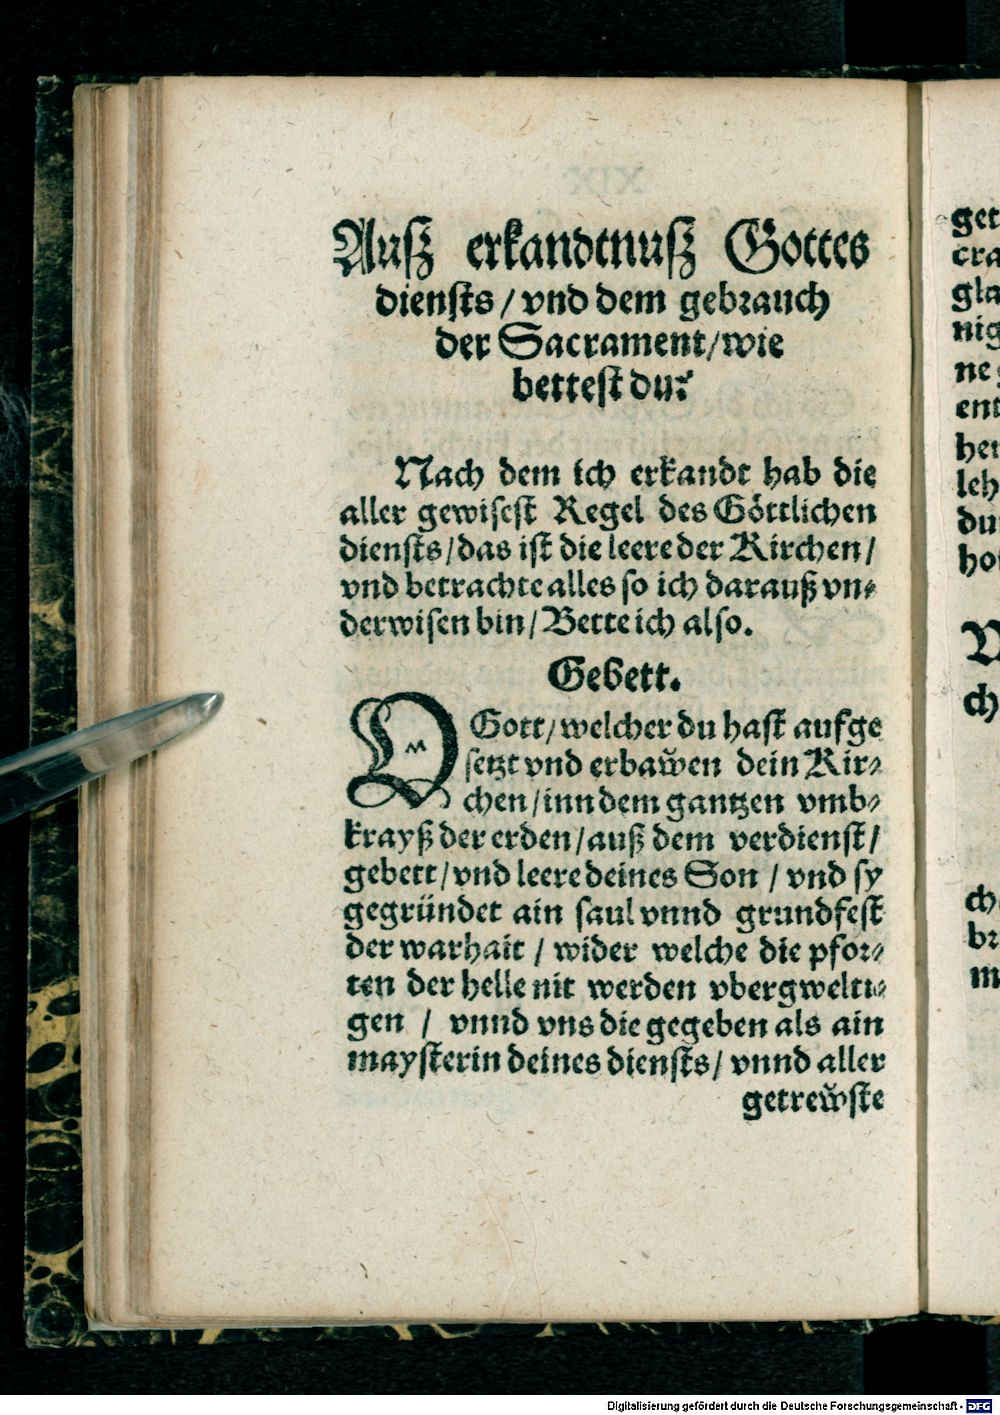 Ausz erkandtnusz Gottes
diensts / vnd dem gebrauch
der Sacrament / wie
bettest du?
Nach dem ich erkandt hab die
aller gewisest Regel des Göttlichen
diensts / das ist die leere der Kirchen /
vnd betrachte alles so ich darauß vn⸗
derwisen bin / Bette ich also.
Gebett.
O Gott / welcher du hast aufge
setzt vnd erbaw̃en dein Kir⸗
chen / inn dem gantzen vmb⸗
krayß der erden / auß dem verdienst /
gebett / vnd leere deines Son / vnd sy
gegründet ain saul vnnd grundfest
der warhait / wider welche die pfor⸗
ten der helle nit werden vbergwelti⸗
gen / vnnd vns die gegeben als ain
maysterin deines diensts / vnnd aller
getrew̃ste
get
cra
gla
nig
ne
ent
her
leh
du
ho
ch
ch
br
m
Digitalisierung gefördert durch die Deutsche Forschungsgemeinschaft - DFG